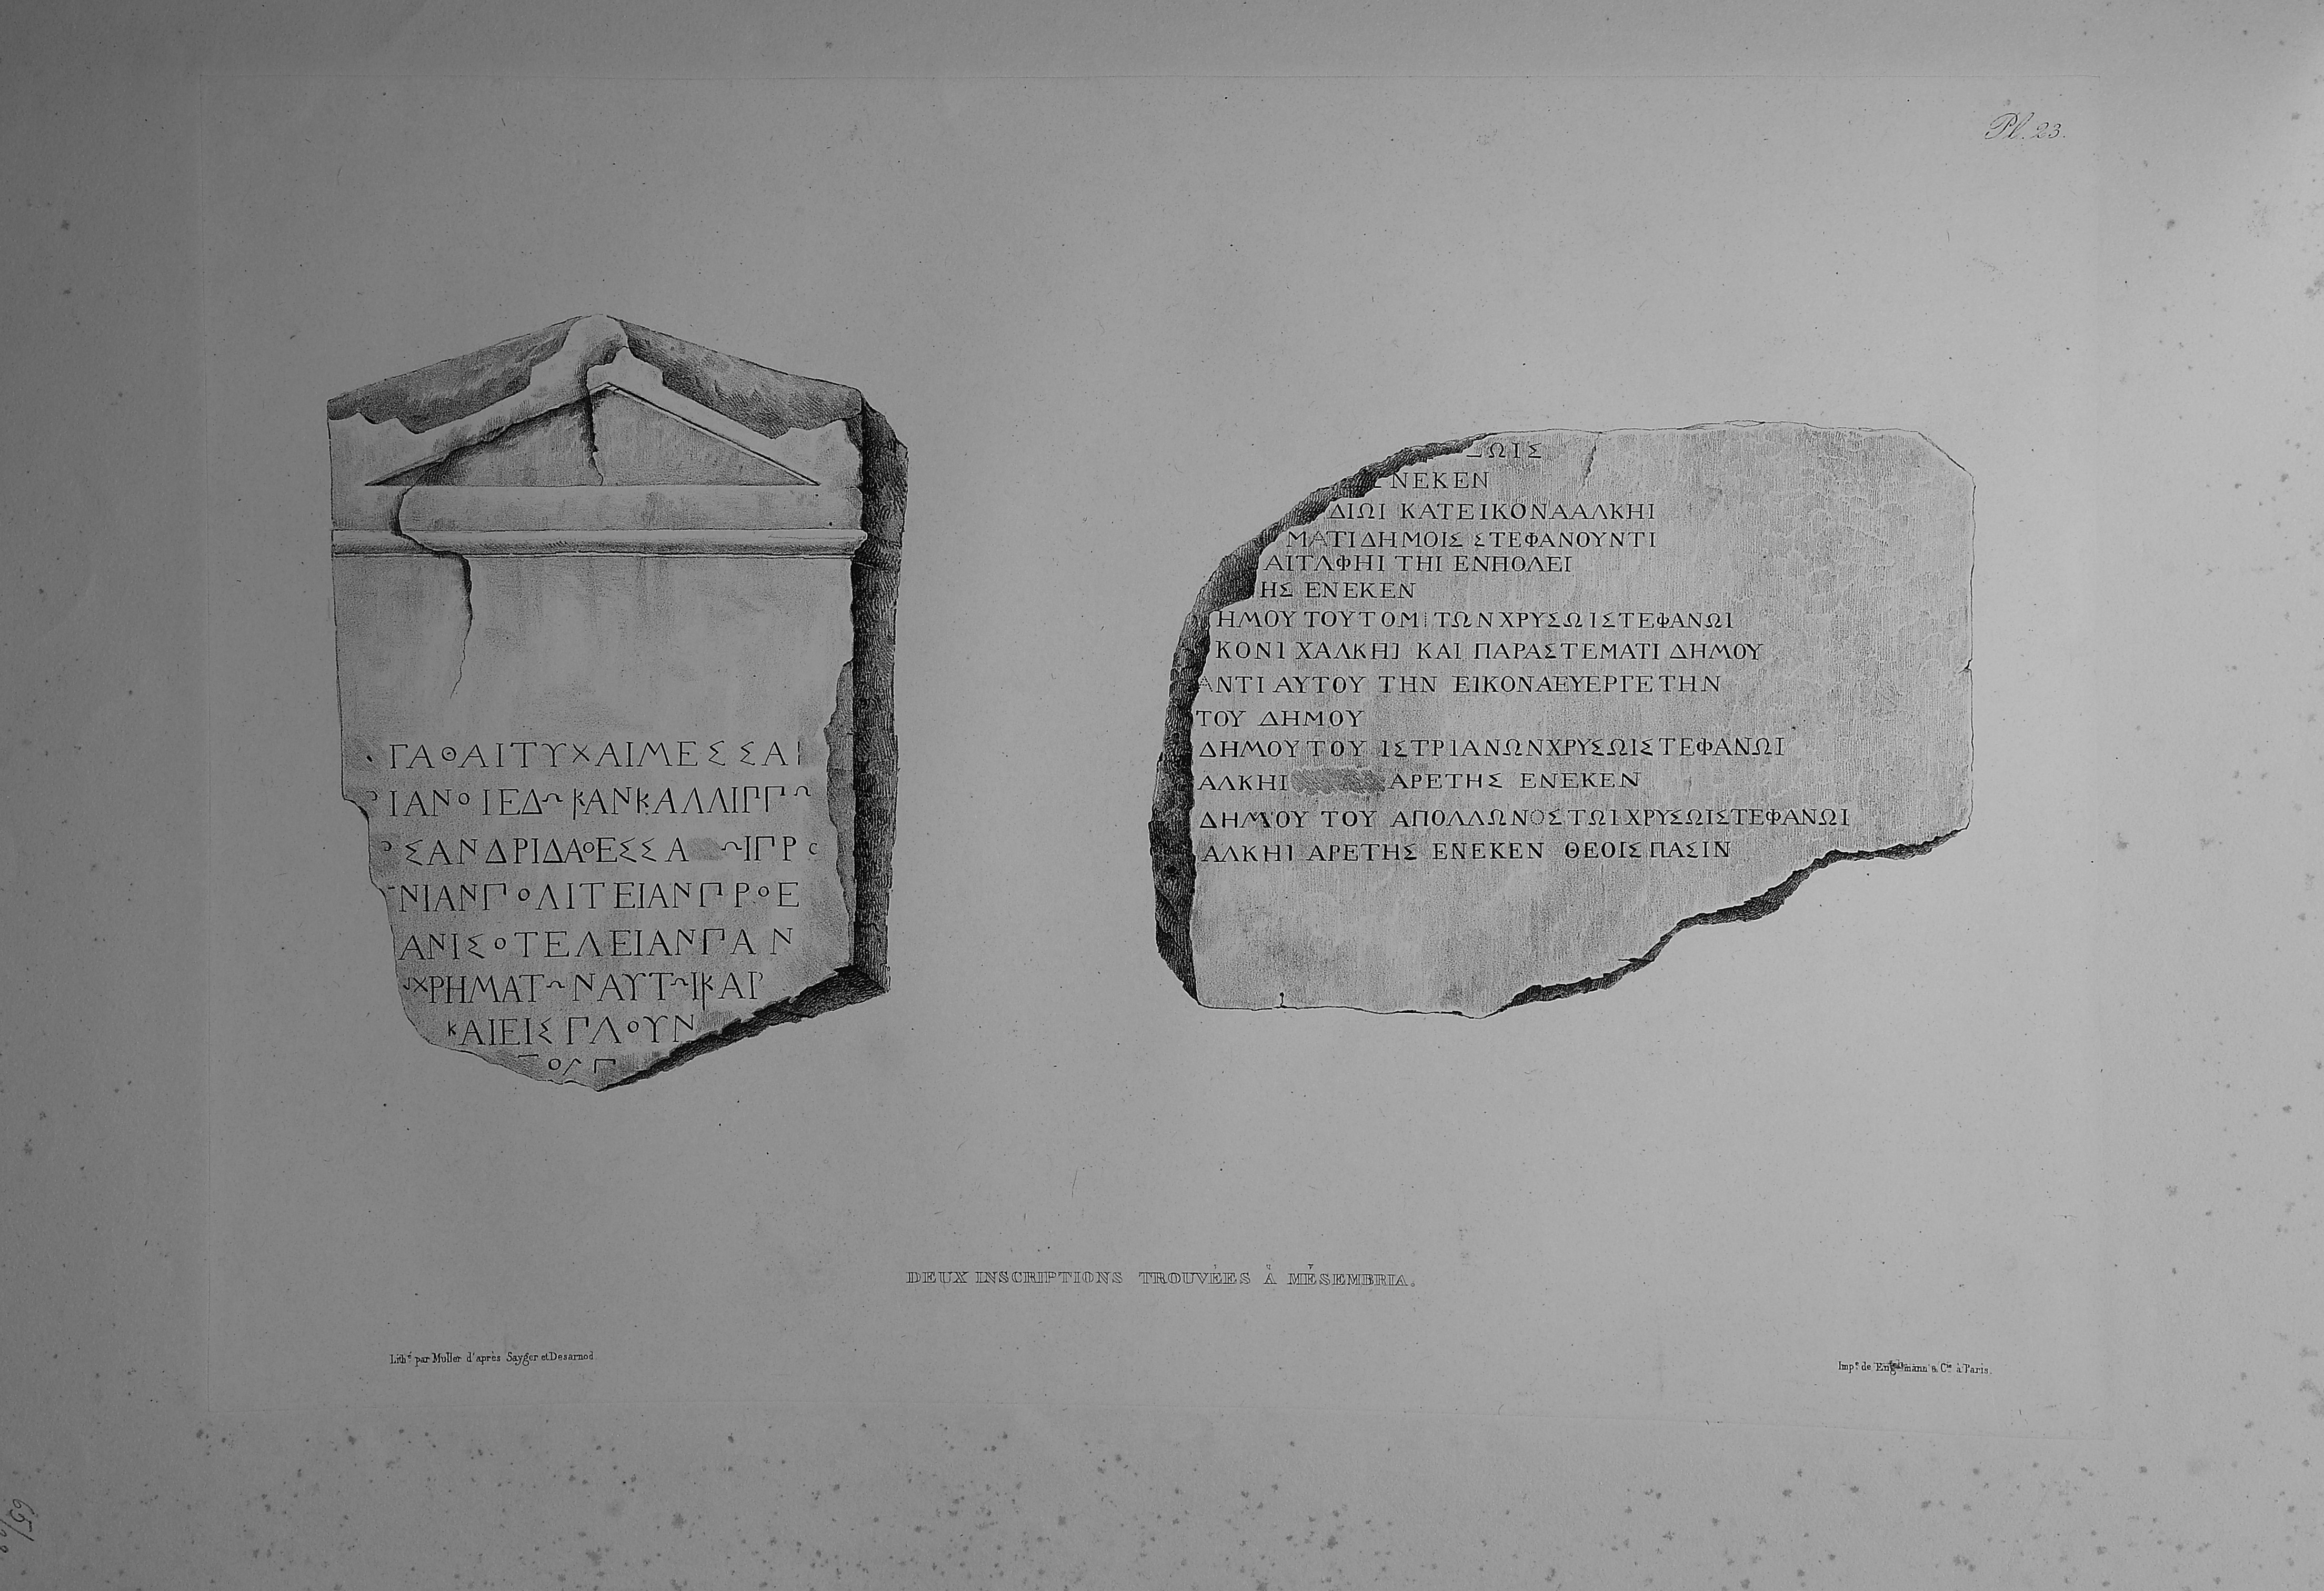 Pl. 23.
ΓΑΘΑΙΤΥΧΑΙΜΕΣΣΑΙ
ΙΑΝΟΙΕΔΩΚΑΝΚΑΛΛΙΠΠΩ
ΣΑΝΔΡΙΔΑΘΕΣΣΑ ΩΙΠΡΟ
ΝΙΑΝΠΟΛΙΤΕΙΑΝΠΡΟΕ
ΑΝΙΣΟΤΕΛΕΙΑΝΠΑΝ
ΧΡΗΜΑΤΩΝΑΥΤΩΙΚΑΙ
ΚΑΙΕΙΣΠΛΟΥΝ
ΩΙΣ
ΝΕΚΕΝ
ΔΙΩΙ ΚΑΤΕΙΚΟΝΑΑΛΚΗΙ
ΜΑΤΙΔΗΜΟΙΣ ΣΤΕΦΑΝΟΥΝΤΙ
ΑΙΤΑΦΗΙ ΤΗΙ ΕΝΠΟΛΕΙ
ΗΣ ΕΝΕΚΕΝ
ΗΜΟΥ ΤΟΥΤΟΜΙΤΩΝΧΡΥΣΩΙΣΤΕΦΑΝΩΙ
ΚΟΝΙ ΧΑΛΚΗΙ ΚΑΙ ΠΑΡΑΣΤΕΜΑΤΙ ΔΗΜΟΥ
ΑΝΤΙΑΥΤΟΥ ΤΗΝ ΕΙΚΟΝΑΕΥΕΡΓΕΤΗΝ
ΤΟΥ ΔΗΜΟΥ
ΔΗΜΟΥΤΟΥ ΙΣΤΡΙΑΝΩΝΧΡΥΣΩΙΣΤΕΦΑΝΩΙ
ΑΛΚΗΙ ΑΡΕΤΗΣ ΕΝΕΚΕΝ
ΔΗΜΟΥ ΤΟΥ ΑΠΟΛΛΩΝΟΣΤΩΙΧΡΥΣΩΙΣΤΕΦΑΝΩΙ
ΑΛΚΗΙ ΑΡΕΤΗΣ ΕΝΕΚΕΝ ΘΕΟΙΣ ΠΑΣΙΝ
DEUX INSCRIPTIONS TROUVÉES À MÉSEMBRIA.
Lith.é par Muller d'après Sayger et Desarnod
Imp.é de Engelmann & C.ie à Paris.